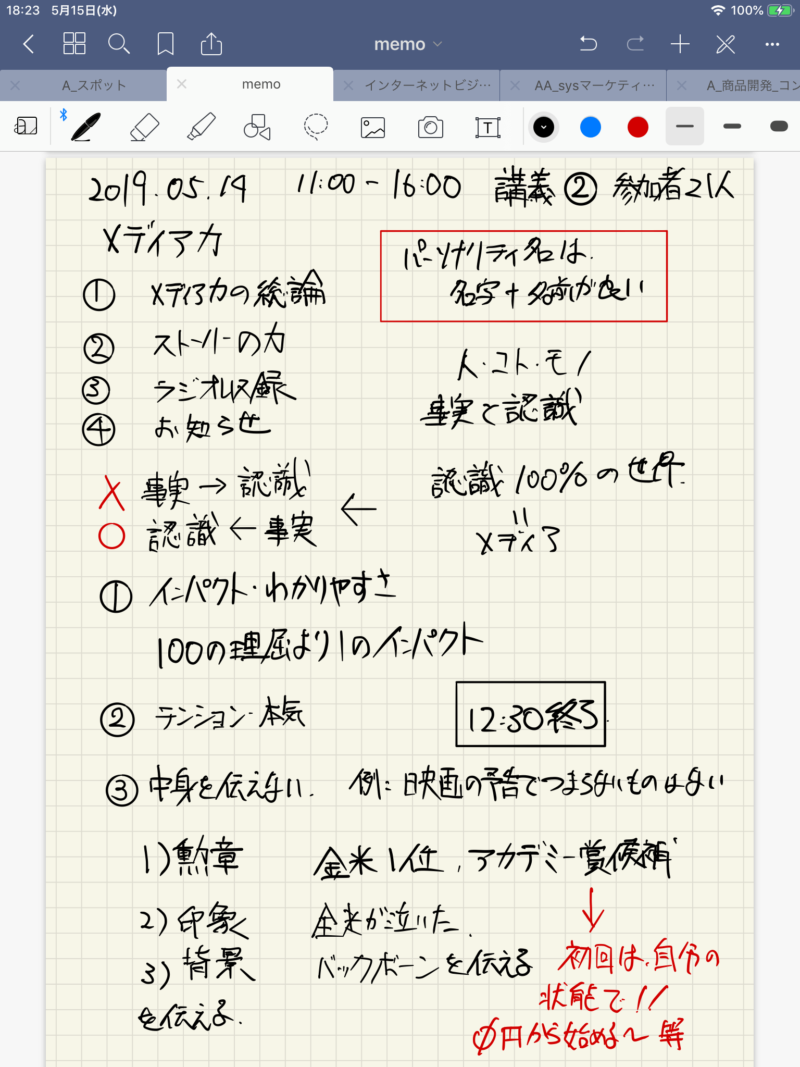 18:23 5月15日(水) 100%
memo
A_スポット memo インターネットビジ… AA_sysマーケティ… A_商品開発_コン
T
2019.05.14 11:00-16:00 講義② 参加者21人
メディア力
パーソナリティ名は、
名字+名前が良い
① メディア力の総論
② ストーリーの力
③ ラジオレス録
④ お知らせ
人・コト・モノ
事実と認識
× 事実→認識 ← 認識100%の世界
○ 認識←事実
=
メディア
① インパクト・わかりやすさ
100の理屈より1のインパクト
② テンション・本気
12:30終了
③ 中身を伝えない. 例:映画の予告でつまらないものはない
1)勲章 全米1位,アカデミー賞候補
2)印象 全米が泣いた.
3)背景 バックボーンを伝える
を伝える.
初回は、自分の
状態で!!
0円から始める〜 等